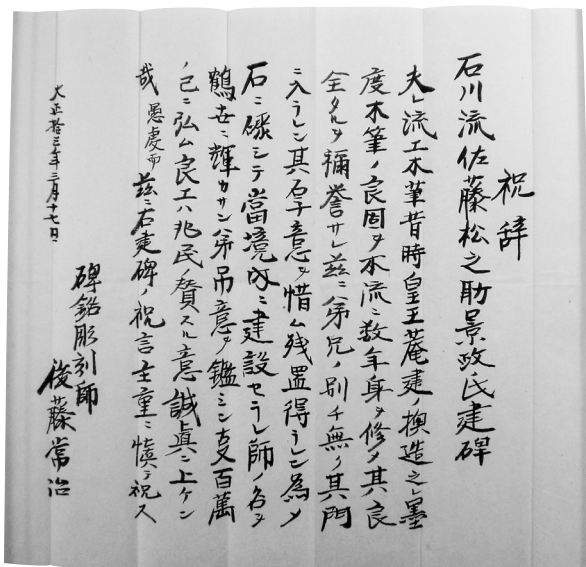 祝辞
石川流佐藤松之助景政氏建碑
夫レ流工木筆昔時皇王菴建ノ模造之レ墨
度木筆ノ良固ヲ本流ニ数年身ヲ修メ其良
全タルヲ稱誉サレ茲ニ弟兄ノ別チ無ク其門
ニ入ラレン其厚意ヲ惜ム残置得ラレン為メ
石ニ シテ當境内ニ建設セラレ師ノ名ヲ
鶴世ニ輝カサン弟吊意ヲ鑑ミン支百萬
ノ己ニ弘ム良工ハ兆民ノ賛スル意誠眞ニ上ケン
哉愚慶而茲ニ右建碑ノ祝言主重ニ慎テ祝ス
大正拾三年三月十七日
碑銘彫刻師
後藤常治